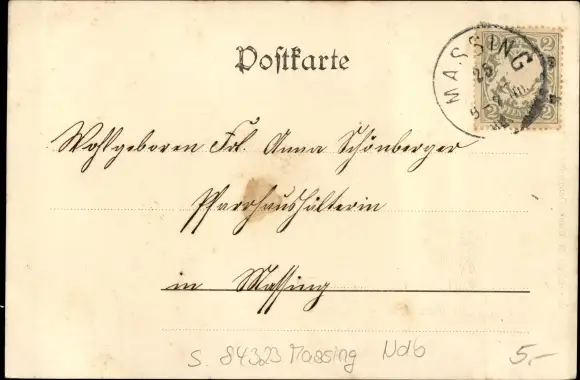 Postkarte
MASSING
25
2
2
Wohlgeboren Frl. Anna Schönberger
Pfarrhaushälterin
in Massing
S. 84323 Massing Ndb
5,-